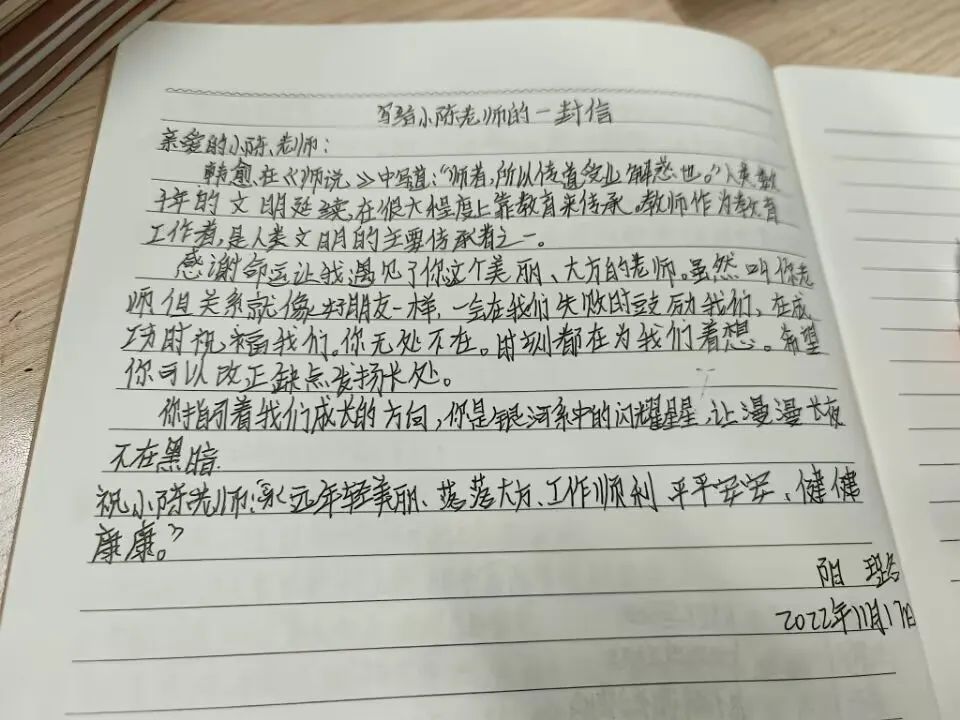 写给小陈老师的一封信
亲爱的小陈老师：
韩愈在《师说》中写道：“师者，所以传道受业解惑也。”人类数
千年的文明延续，在很大程度上靠教育来传承。教师作为教育
工作者，是人类文明的主要传承者之一。
感谢命运让我遇见了你这个美丽、大方的老师。虽然叫你老
师但关系就像好朋友一样，会在我们失败时鼓励我们，在成
功时祝福我们。你无处不在。时刻都在为我们着想。希望
你可以改正缺点发扬长处。
你指引着我们成长的方向，你是银河系中的闪耀星星，让漫漫长夜
不在黑暗.
祝小陈老师：“永远年轻美丽、落落大方、工作顺利、平平安安、健健
康康。”
阳
2022年11月17日